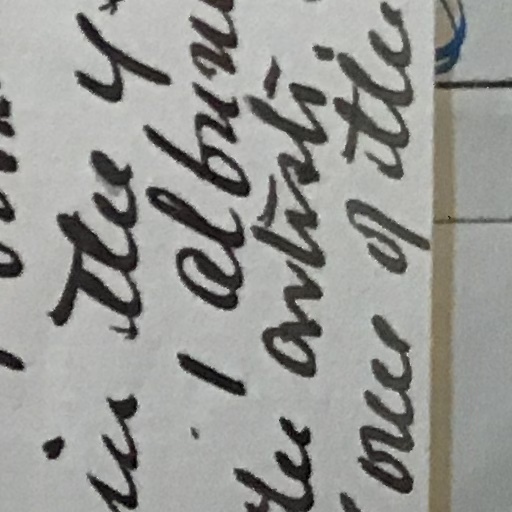 in the 4
1 album
the artists.
one of the